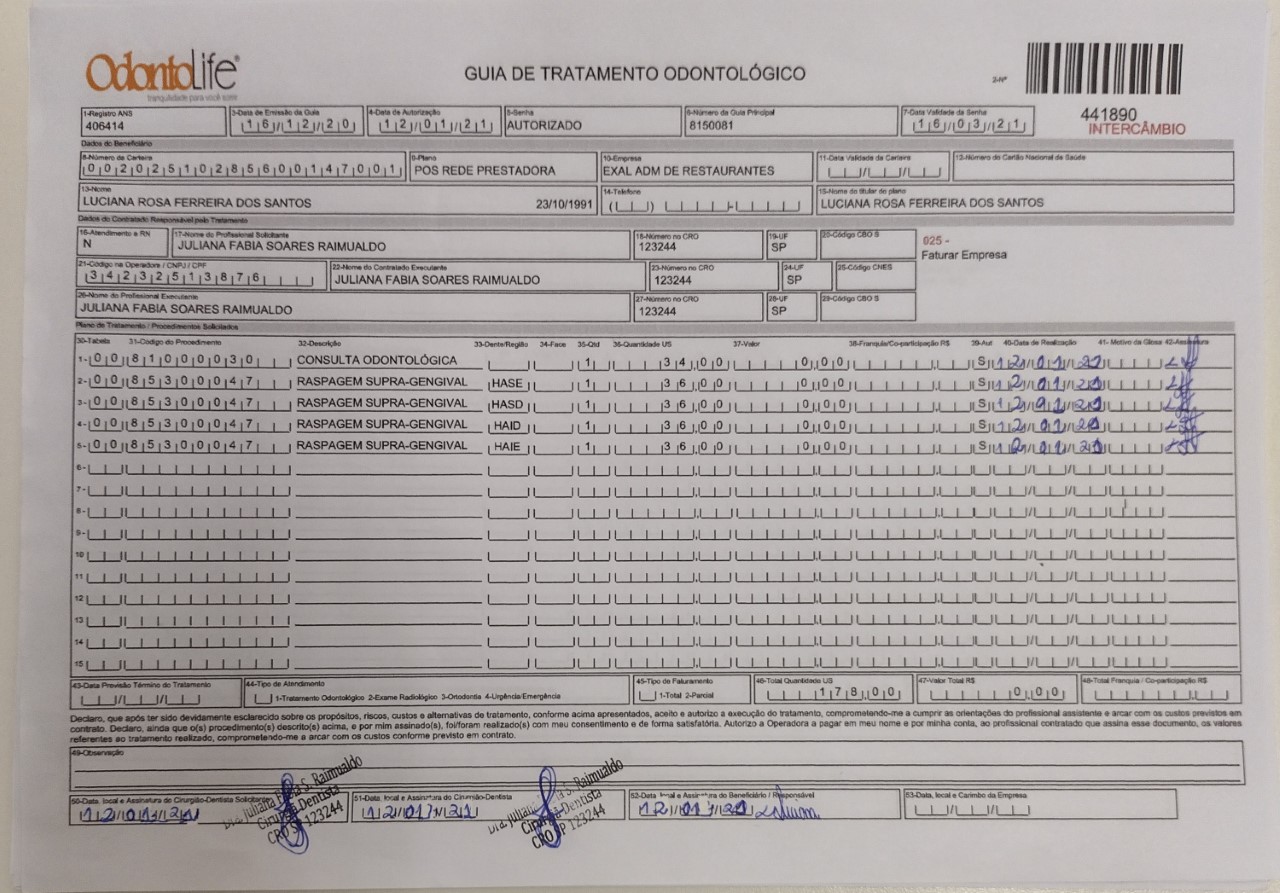 OdontoLife®
tranquilidade para você sorrir
GUIA DE TRATAMENTO ODONTOLÓGICO
2-Nº
441890
INTERCÂMBIO
1-Registro ANS
406414
3-Data de Emissão da Guia
16/12/20
4-Data de Autorização
12/01/21
5-Senha
AUTORIZADO
6-Número da Guia Principal
8150081
7-Data Validade da Senha
16/03/21
Dados do Beneficiário
8-Número da Carteira
00202510285600147001
9-Plano
POS REDE PRESTADORA
10-Empresa
EXAL ADM DE RESTAURANTES
11-Data Validade da Carteira
12-Número do Cartão Nacional de Saúde
13-Nome
LUCIANA ROSA FERREIRA DOS SANTOS 23/10/1991
14-Telefone
15-Nome do titular do plano
LUCIANA ROSA FERREIRA DOS SANTOS
Dados do Contratado Responsável pelo Tratamento
16-Atendimento a RN
N
17-Nome do Profissional Solicitante
JULIANA FABIA SOARES RAIMUALDO
18-Número no CRO
123244
19-UF
SP
20-Código CBO S
025 -
Faturar Empresa
21-Código na Operadora / CNPJ / CPF
34232513876
22-Nome do Contratado Executante
JULIANA FABIA SOARES RAIMUALDO
23-Número no CRO
123244
24-UF
SP
25-Código CNES
26-Nome do Profissional Executante
JULIANA FABIA SOARES RAIMUALDO
27-Número no CRO
123244
28-UF
SP
29-Código CBO S
Plano de Tratamento / Procedimentos Solicitados
30-Tabela 31-Código do Procedimento 32-Descrição 33-Dente/Região 34-Face 35-Qtd 36-Quantidade US 37-Valor 38-Franquia/Co-participação R$ 39-Aut 40-Data de Realização 41- Motivo da Glosa 42-Assinatura
1- 00 81000030 CONSULTA ODONTOLÓGICA 1 34,00 0,00 S 12/01/21
2- 00 85300047 RASPAGEM SUPRA-GENGIVAL HASE 1 36,00 0,00 S 12/01/21
3- 00 85300047 RASPAGEM SUPRA-GENGIVAL HASD 1 36,00 0,00 S 12/01/21
4- 00 85300047 RASPAGEM SUPRA-GENGIVAL HAID 1 36,00 0,00 S 12/01/21
5- 00 85300047 RASPAGEM SUPRA-GENGIVAL HAIE 1 36,00 0,00 S 12/01/21
6-
7-
8-
9-
10
11
12
13
14
15
43-Data Previsão Término do Tratamento
44-Tipo de Atendimento
1-Tratamento Odontológico 2-Exame Radiológico 3-Ortodontia 4-Urgência/Emergência
45-Tipo de Faturamento
1-Total 2-Parcial
46-Total Quantidade US
178,00
47-Valor Total R$
0,00
48-Total Franquia / Co-participação R$
Declaro, que após ter sido devidamente esclarecido sobre os propósitos, riscos, custos e alternativas de tratamento, conforme acima apresentados, aceito e autorizo a execução do tratamento, comprometendo-me a cumprir as orientações do profissional assistente e arcar com os custos previstos em
contrato. Declaro, ainda que o(s) procedimento(s) descrito(s) acima, e por mim assinado(s), foi/foram realizado(s) com meu consentimento e de forma satisfatória. Autorizo a Operadora a pagar em meu nome e por minha conta, ao profissional contratado que assina esse documento, os valores
referentes ao tratamento realizado, comprometendo-me a arcar com os custos conforme previsto em contrato.
49-Observação
50-Data, local e Assinatura do Cirurgião-Dentista Solicitante
12/01/21
Dra. Juliana Fabia S. Raimualdo
Cirurgiã-Dentista
CRO SP 123244
51-Data, local e Assinatura do Cirurgião-Dentista
12/01/21
Dra. Juliana Fabia S. Raimualdo
Cirurgiã-Dentista
CRO SP 123244
52-Data, local e Assinatura do Beneficiário / Responsável
12/01/21
53-Data, local e Carimbo da Empresa